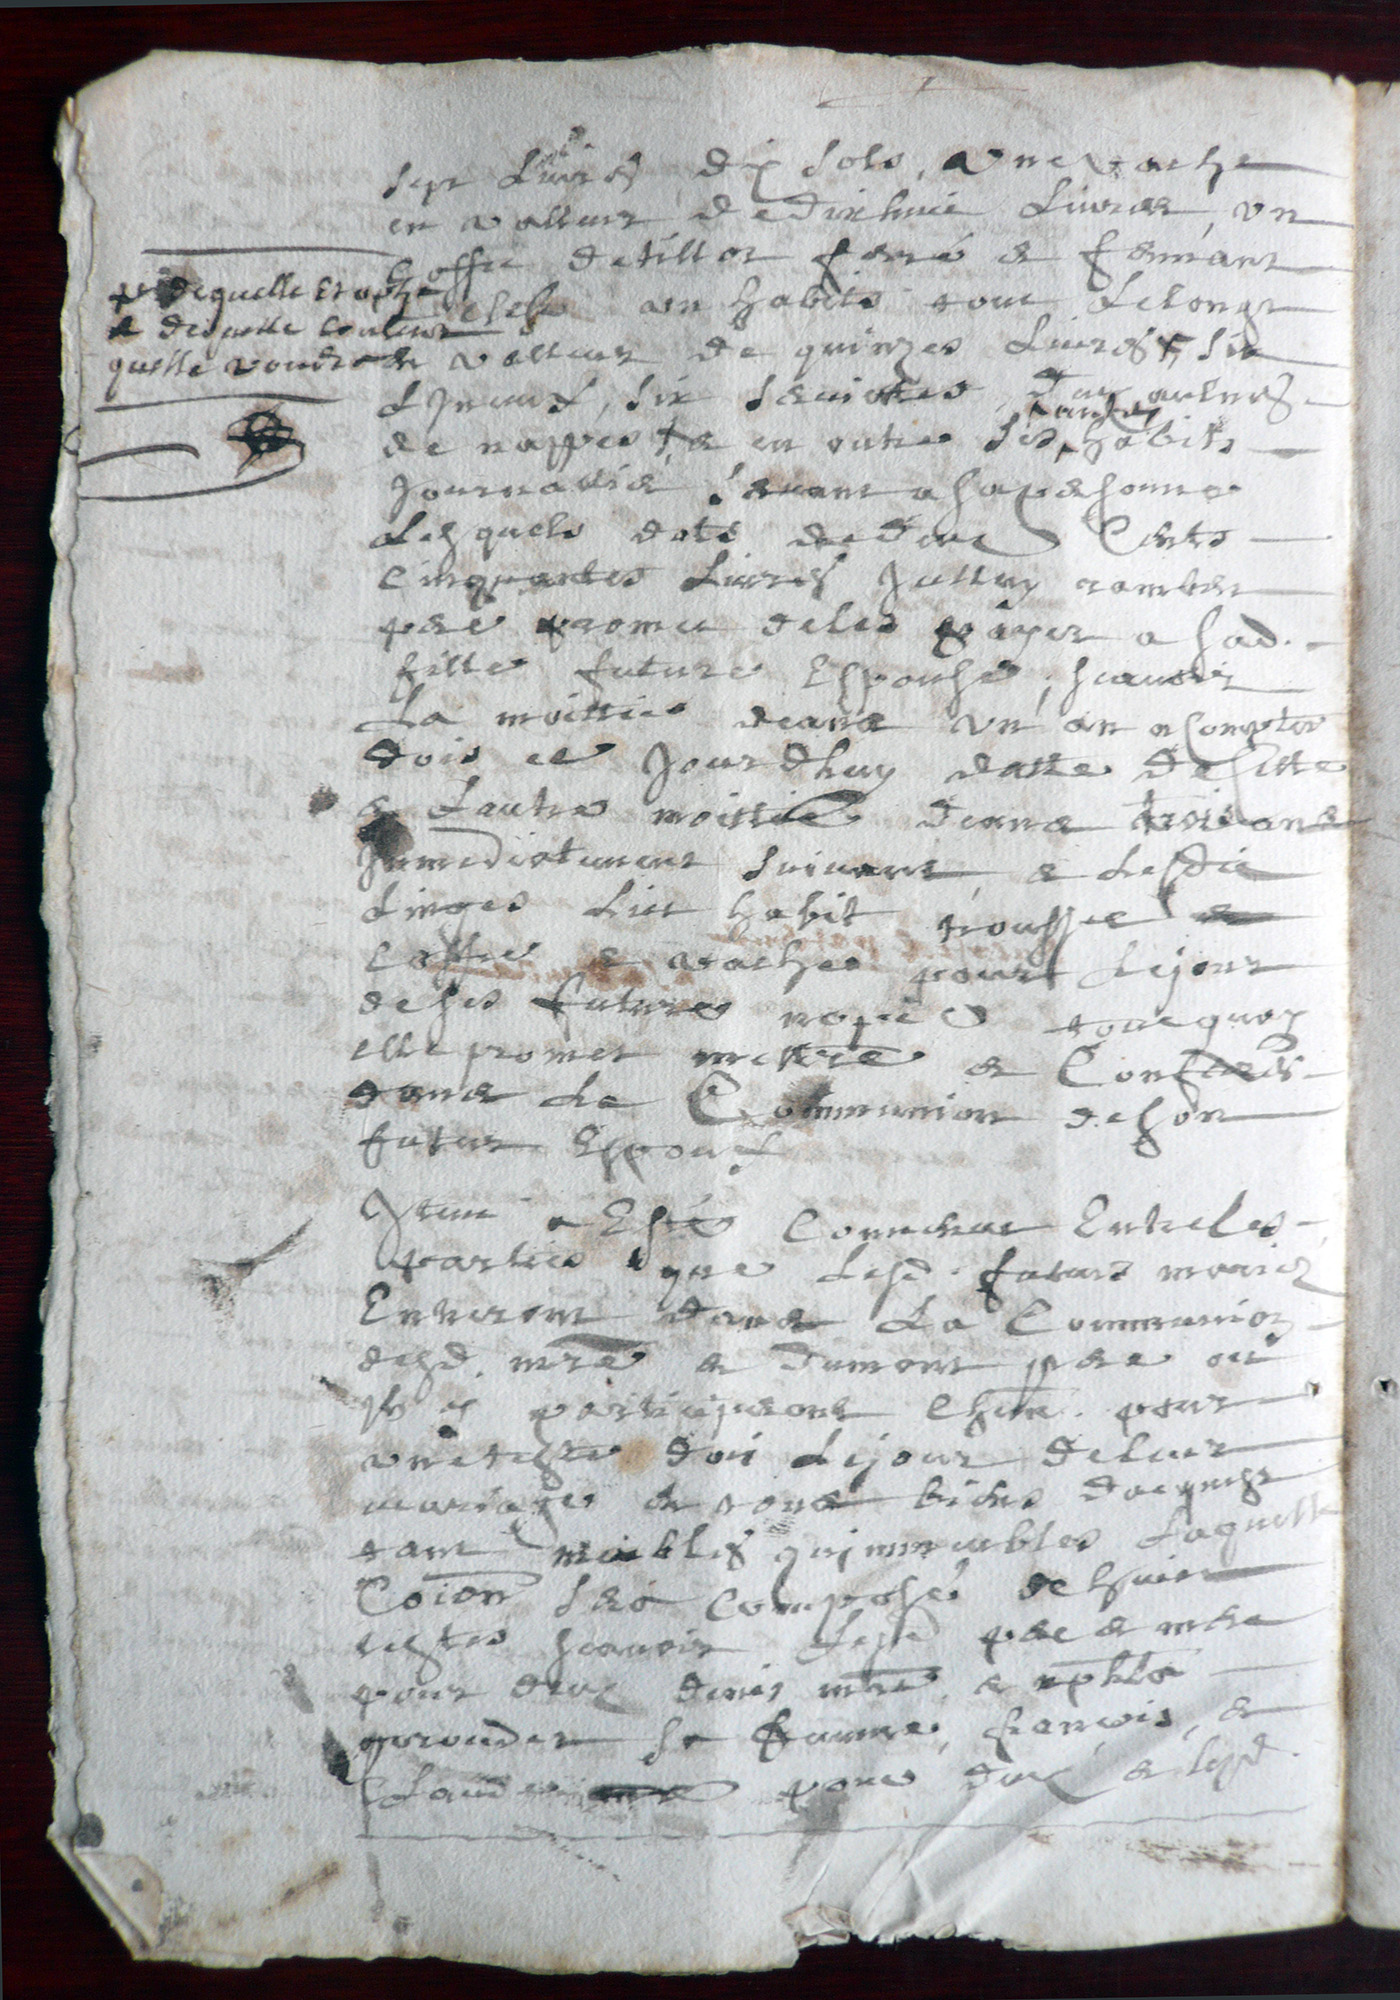 sept Livres dix sols, une vache
en valleur de dixhuict Livres, un
coffre de tillot ferré & fermant
a clefs un habits tout de longt
de valleur de quinzes Livres + six
Linceux, six serviettes, deux aulnes
de nappes & en outre ses habits
Journalié servant a sa personne
Lesquels dots de deux Cents
Cinquantes Livres
pere promet de les payer a sad.
fille future Espouse, scavoir
La moittié dans un an a compter
dois ce Jourdhuy datte de cette
& Lautre moittié dans trois ans
Immediatement suivant, & lesdit
Linges Lict habit troussel &
coffre & vaches pour le jour
de ses futures nopces tout quoy
elle promet mettre & Conferer
dans La Communion de son
futur Espoux
Item a Esté Convenut Entre Les
parties que Lesd. futurs mariez
Entreront dans La Communion
desd. & Dumont pere ou
Ils y participeront pour
une teste doit le jour de leur
mariages & tous biens d'acquest
tant meubles qu'immeubles Laquelle
Coion sera Composé de huict
testes scavoir Lesd pere & mere
pour deux denis &
sa femme, francois, &
Claude pour deux & lesd.
+ de quelle Etophe
& de quelle couleur
quelle voudra